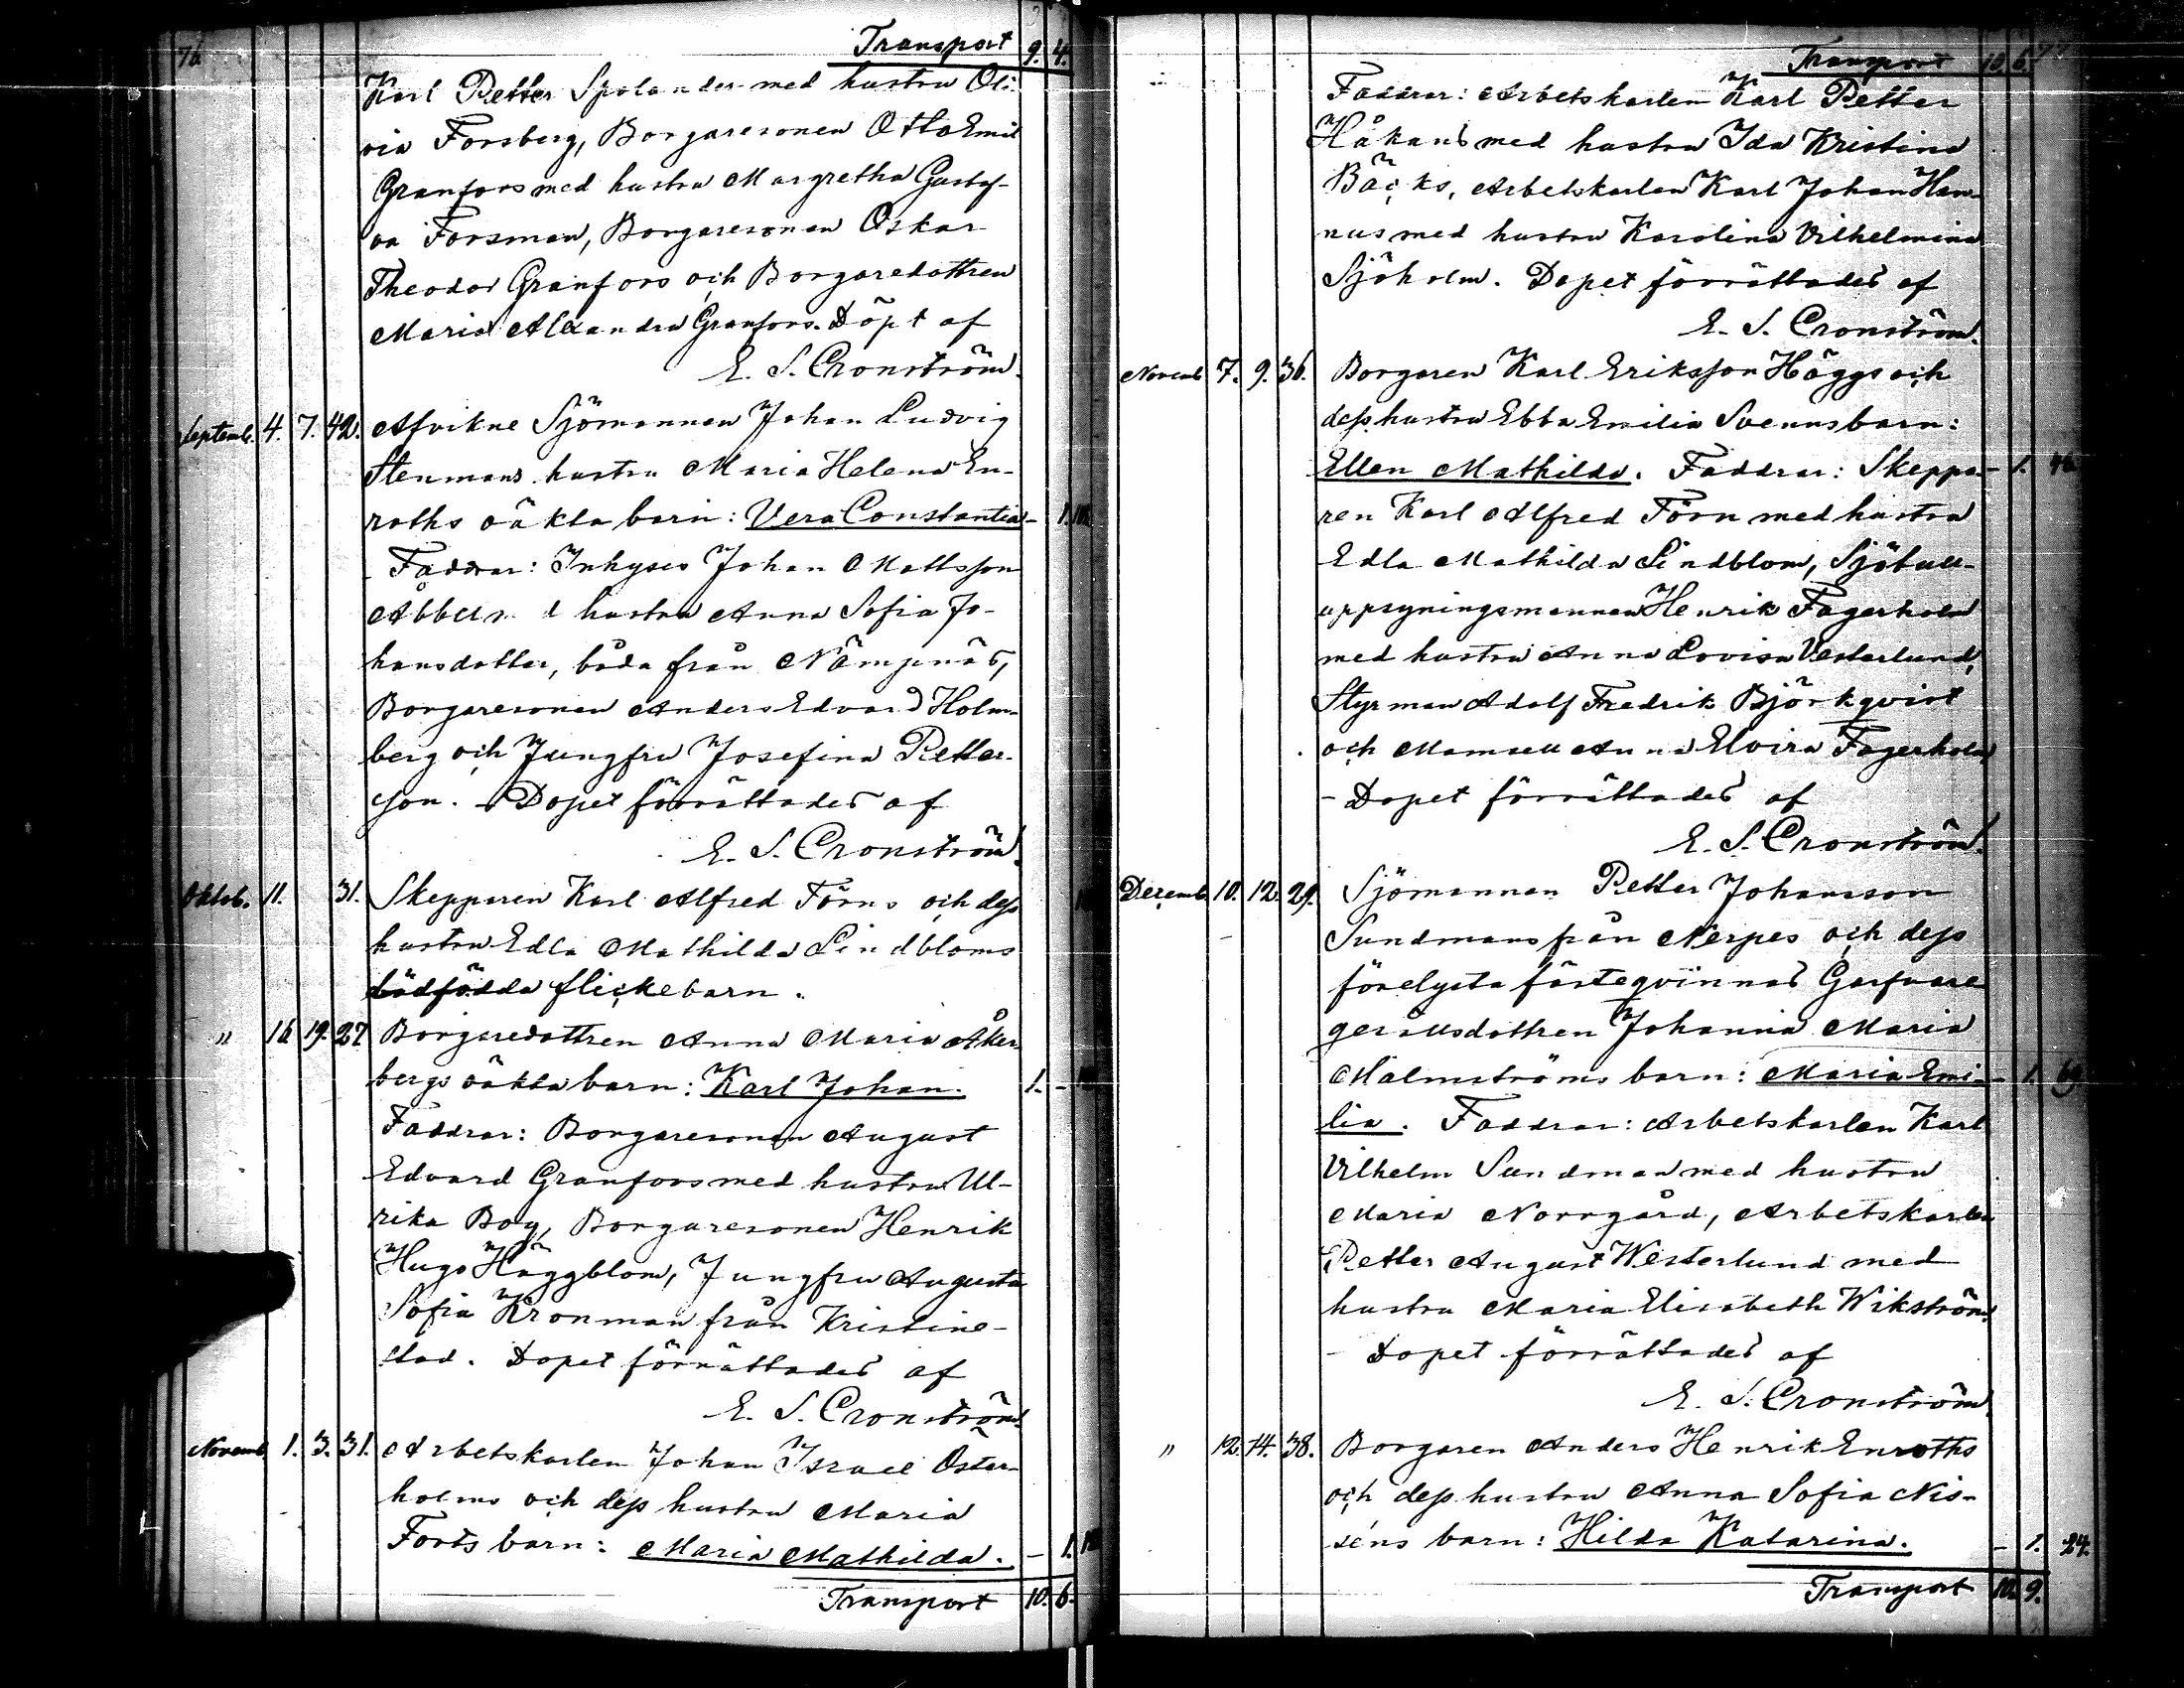 76
Transport 9. 4.
Karl Petter Spolander med hustru Oli-
via Forsberg, Borgaresonen Otto Emil
Granfors med hustru Margretha Gustaf-
va Forsman, Borgaresonen Oskar
Theodor Granfors och Borgaredottren
Maria Alexandra Granfors. Döpt af
E. S. Cronström.
Septemb. 4. 7. 42. Afvikne Sjömannen Johan Ludvig
Stenmans hustru Maria Helena En-
roths oäkta barn: Vera Constantia - 1.
Faddrar: Inhyses Johan Mattsson
Åbb hustru Anna Sofia Jo-
hansdotter, båda från Nämpnäs,
Borgaresonen Anders Edvard Holm-
berg och Jungfru Josefina Petter-
son. - Dopet förrättades af
E. S. Cronström.
Oktob. 11. 31. Skepparen Karl Alfred Förns och dess
hustru Edla Mathilda Lindbloms
dödfödda flickebarn.
" 16 19. 27 Borgaredottren Anna Maria Åker-
bergs oäkta barn: Karl Johan. 1. -
Faddrar: Borgaresonen August
Edvard Granfors med hustru Ul-
rika Boy, Borgaresonen Henrik
Hugo Häggblom, Jungfru Augusta
Sofia Kronman från Kristine-
stad. Dopet förrättades af
E. S. Cronström.
Novemb 1. 3. 31. Arbetskarlen Johan Israel Öster-
holms och dess hustru Maria
Forts barn: Maria Mathilda. - 1.
Transport 10. 6.
77
Transport 10. 6.
Faddrar: Arbetskarlen Karl Petter
Håkans med hustru Ida Kristina
Bäcks, Arbetskarlen Karl Johan Han-
nus med hustru Karolina Vilhelmina
Sjöholm. Dopet förrättades af
E. S. Cronström.
Novemb 7. 9. 36. Borgaren Karl Eriksson Häggs och
dess hustru Ebba Emilia Svenns barn:
Ellen Mathilda. Faddrar: Skeppa- - 1.
ren Karl Alfred Förn med hustru
Edla Mathilda Lindblom, Sjötull-
uppsyningsmannen Henrik Fagerholm
med hustru Anna Lovisa Vesterlund,
Styrman Adolf Fredrik Björkqvist
och Mamsell Anna Elvira Fagerholm
- Dopet förrättades af
E. S. Cronström.
Decemb 10. 12. 29. Sjömannen Petter Johansson
Sundmans från Nerpes och dess
förelysta fästeqvinnas Garfvare
gesällsdottren Johanna Maria
Malmströms barn: Maria Emi- - 1. 69
lia. Faddrar: Arbetskarlen Karl
Vilhelm Sundman med hustru
Maria Norrgård, Arbetskarlen
Petter August Westerlund med
hustru Maria Elisabeth Wikström.
- Dopet förrättades af
E. S. Cronström.
" 12. 14. 38. Borgaren Anders Henrik Enroths
och dess hustru Anna Sofia Nis-
séns barn: Hilda Katarina. - 1. 24.
Transport 10. 9.